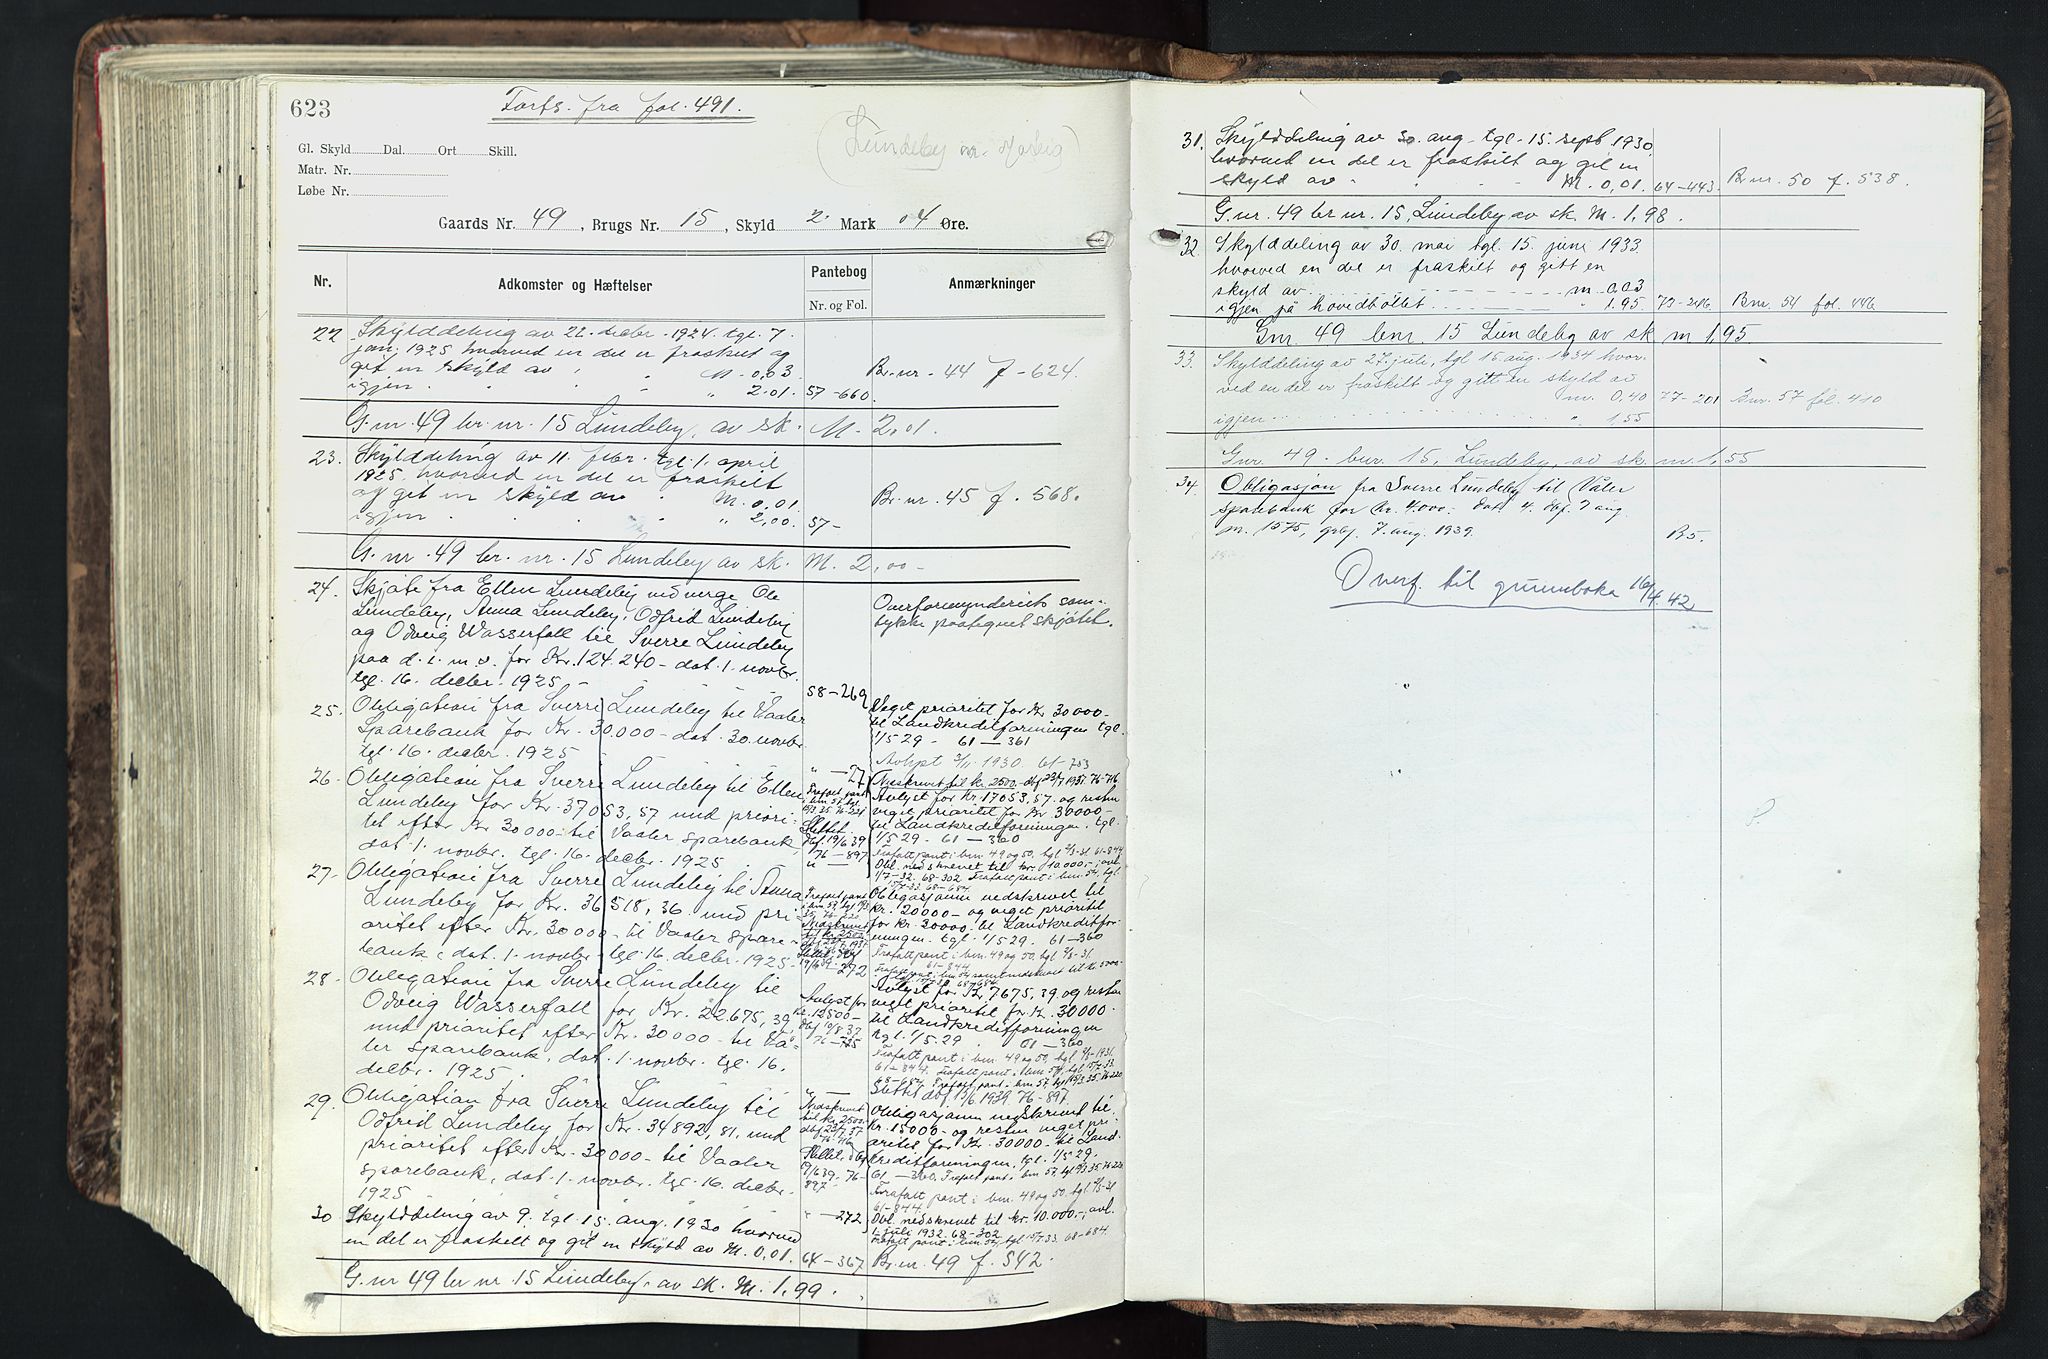 623
Forts. fra fol. 491.
(Lundeby
Gl. Skyld Dal. Ort Skill.
Matr. Nr.
Løbe Nr.
Gaards Nr. 49, Brugs Nr. 15, Skyld 2 Mark 04 Øre.
Nr. Adkomster og Hæftelser Pantebog Nr. og Fol. Anmærkninger
22 Skylddeling av 22. decbr. 1924. tgl. 7.
jan. 1925 hvorved en del er fraskilt og
git en skyld av M. 0,03
igjen " 2.01. 57-660. Br. nr. 44 f. 624.
G. nr. 49 br. nr. 15 Lundeby, av sk. M. 2,01.
23. Skylddeling av 11. febr. tgl. 1. april
1925, hvorved en del er fraskilt
og git en skyld av M. 0,01
igjen " 2,00. 57- Br. nr. 45 f. 568.
G. nr. 49 br. nr. 15 Lundeby av sk. M. 2,00-
24. Skjøte fra Ellen Lundeby ved verge Ole
Lundeby, Anna Lundeby, Odfrid Lundeby
og Odveig Wasserfall til Sverre Lundeby
paa d. e. m. v. for Kr. 124.240- dat. 1. novbr.
tgl. 16. decbr. 1925 58-269
Overformynderiets sam-
tykke paategnet skjøtet.
25. Obligation fra Sverre Lundeby til Vaaler
Sparebank for Kr. 30.000- dat. 30. novbr.
tgl. 16. decbr. 1925
Veget prioritet for Kr 30000-
til Landkreditforeningen tgl.
1/5 29- 61-361
Avlyst 3/11 1930. 61-753
26. Obligation fra Sverre Lundeby til Ellen
Lundeby for Kr. 37053,57 med priori-
tet efter Kr 30000- til Vaaler sparebank,
dat. 1. novbr. tgl. 16. decbr. 1925
Slettet
dbf. 19/6 39
76-897
Avlyst for Kr. 17053,57. og resten
veget prioritet for Kr 30000-
til Landkreditforeningen, tgl.
1/5 29- 61-360
Frafalt pant i bnr. 49 og 50, tgl 2/3-31 61-844
Obl. nedskrevet til kr. 10.000,-, avl.
1/7-32. 68-302 Frafalt pant i bnr. 54, tgl
15/7-33. 68-684.
27. Obligation fra Sverre Lundeby til Anna
Lundeby for Kr. 36518,36 med pri-
oritet efter Kr. 30000- til Vaaler spare-
bank, dat. 1. novbr. tgl. 16. decbr. 1925.-272
Obligasjonen nedskrevet til
kr. 20000- og veget prioritet
for kr. 30000. til Landkreditfor-
eningen. tgl. 1/5 29. 61-360
Frafalt pant i bnr. 49 og 50, tgl 2/3-31.
61-844
28. Obligation fra Sverre Lundeby til
Odveig Wasserfall for Kr. 22.675,39,
med prioritet efter Kr. 30000- til Vå-
ler sparebank, dat. 1. novbr. tgl. 16.
decbr. 1925.
Avlyst for
kr. 12500-
dbf 10/8 37
76-795
Avlyst for Kr. 7675,39 og resten
veget prioritet for Kr. 30000-
til Landkreditforeningen
tgl. 1/5. 29 61-360
Frafalt pant i bnr. 49 og 50, tgl. 2/3-1931.
61-844. Frafalt pant i bnr 54, tgl. 15/7-33.
68-684. Frafalt pant i bnr 57, tgl 19/3 35. 76-220
Slettet dbf. 19/6. 1939. 76-897.
29. Obligation fra Sverre Lundeby til
Odfrid Lundeby for Kr. 34892,81. med
prioritet efter Kr. 30000- til Vaaler
sparebank, dat. 1. novbr. tgl. 16. decbr.
1925 " -272
Nedskrevet
til kr. 2500.
Slettet, dbf
19/6 39. 76-
897.
Obligasjonen nedskrevet til
kr. 15000- og resten veget pri-
oritet for Kr. 30000- til Land-
kreditforeningen. tgl. 1/5 29.
61-360. Frafalt pant i bnr 57, tgl 19/3 35. 76-220
Frafalt pant i bnr. 49 og 50, tgl 2/3-31
61-844.
Obl. nedskrevet til kr. 10.000,-, avl.
1. juli 1932. 68-302
Frafalt pant i bnr. 54, tgl 15/7 33. 68-684.
30 Skylddeling av 9. tgl. 15. aug. 1930 hvorved
en del er fraskilt og git en skyld av M. 0,01. 64-367 Br. nr. 49 f. 542.
G. nr 49 br nr. 15 Lundeby, av sk. M. 1,99.
31. Skylddeling av 30. aug. tgl. 15. sept 1930
hvorved en del er fraskilt og git en
skyld av M. 0,01. 64-443. Br. nr. 50 f. 538.
G. nr. 49 br nr. 15, Lundeby av sk. M. 1,98.
32. Skylddeling av 30. mai tgl. 15. juni 1933
hvorved en del er fraskilt og gitt en
skyld av m. 0,03
igjen på hovedbøllet " 1.95 73-246 Bnr. 54 fol. 446
Gnr 49 bnr. 15 Lundeby av sk m 1,95
33. Skylddeling av 27. juli, tgl 15 aug. 1934 hvor-
ved en del er fraskilt og gitt en skyld av
m. 0,40 77-201 Bnr. 57 fol. 410
igjen " 1,55
Gnr. 49. bnr. 15, Lundeby, av sk. m. 1,55
34. Obligasjon fra Sverre Lundeby til Våler
sparebank for kr. 4.000.- dat. 4. dbf. 7 aug.
m. 1575, 7. aug. 1939. B5.
Overf. til grunnboka 16/4.42